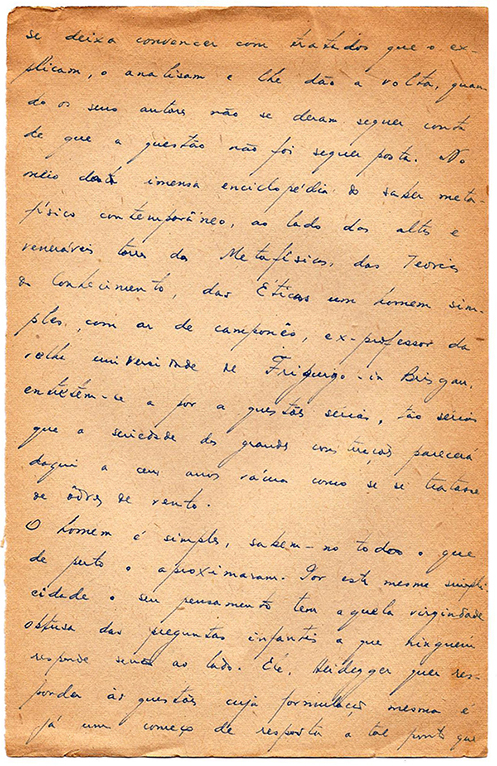 se deixa convencer com tratados que o ex-
plicam, o analisam e lhe dão a volta, quan
do os seus autores não se deram sequer conta
de que a questão não foi sequer posta. No
meio desta imensa enciclopédia do saber meta-
físico contemporâneo, ao lado das altas e
veneráveis torres da Metafísica, das Teorias
do Conhecimento, das Éticas um homem sim-
ples, com ar de camponês, ex-professor da
velha universidade de Friburgo-in Brisgau,
entretém-se a pôr a questões sérias, tão sérias
que a seriedade das grandes construções parecerá
daqui a cem anos vácua como se se tratasse
de ôdres de vento.
O homem é simples, sabem-no todos o que
de perto o aproximaram. Por esta mesma simpli-
cidade o seu pensamento tem aquela virgindade
obtusa das perguntas infantis a que ninguém
responde senão ao lado. Ele, Heidegger quer res-
ponder às questões cuja formulação mesma é
já um começo de resposta a tal ponto que